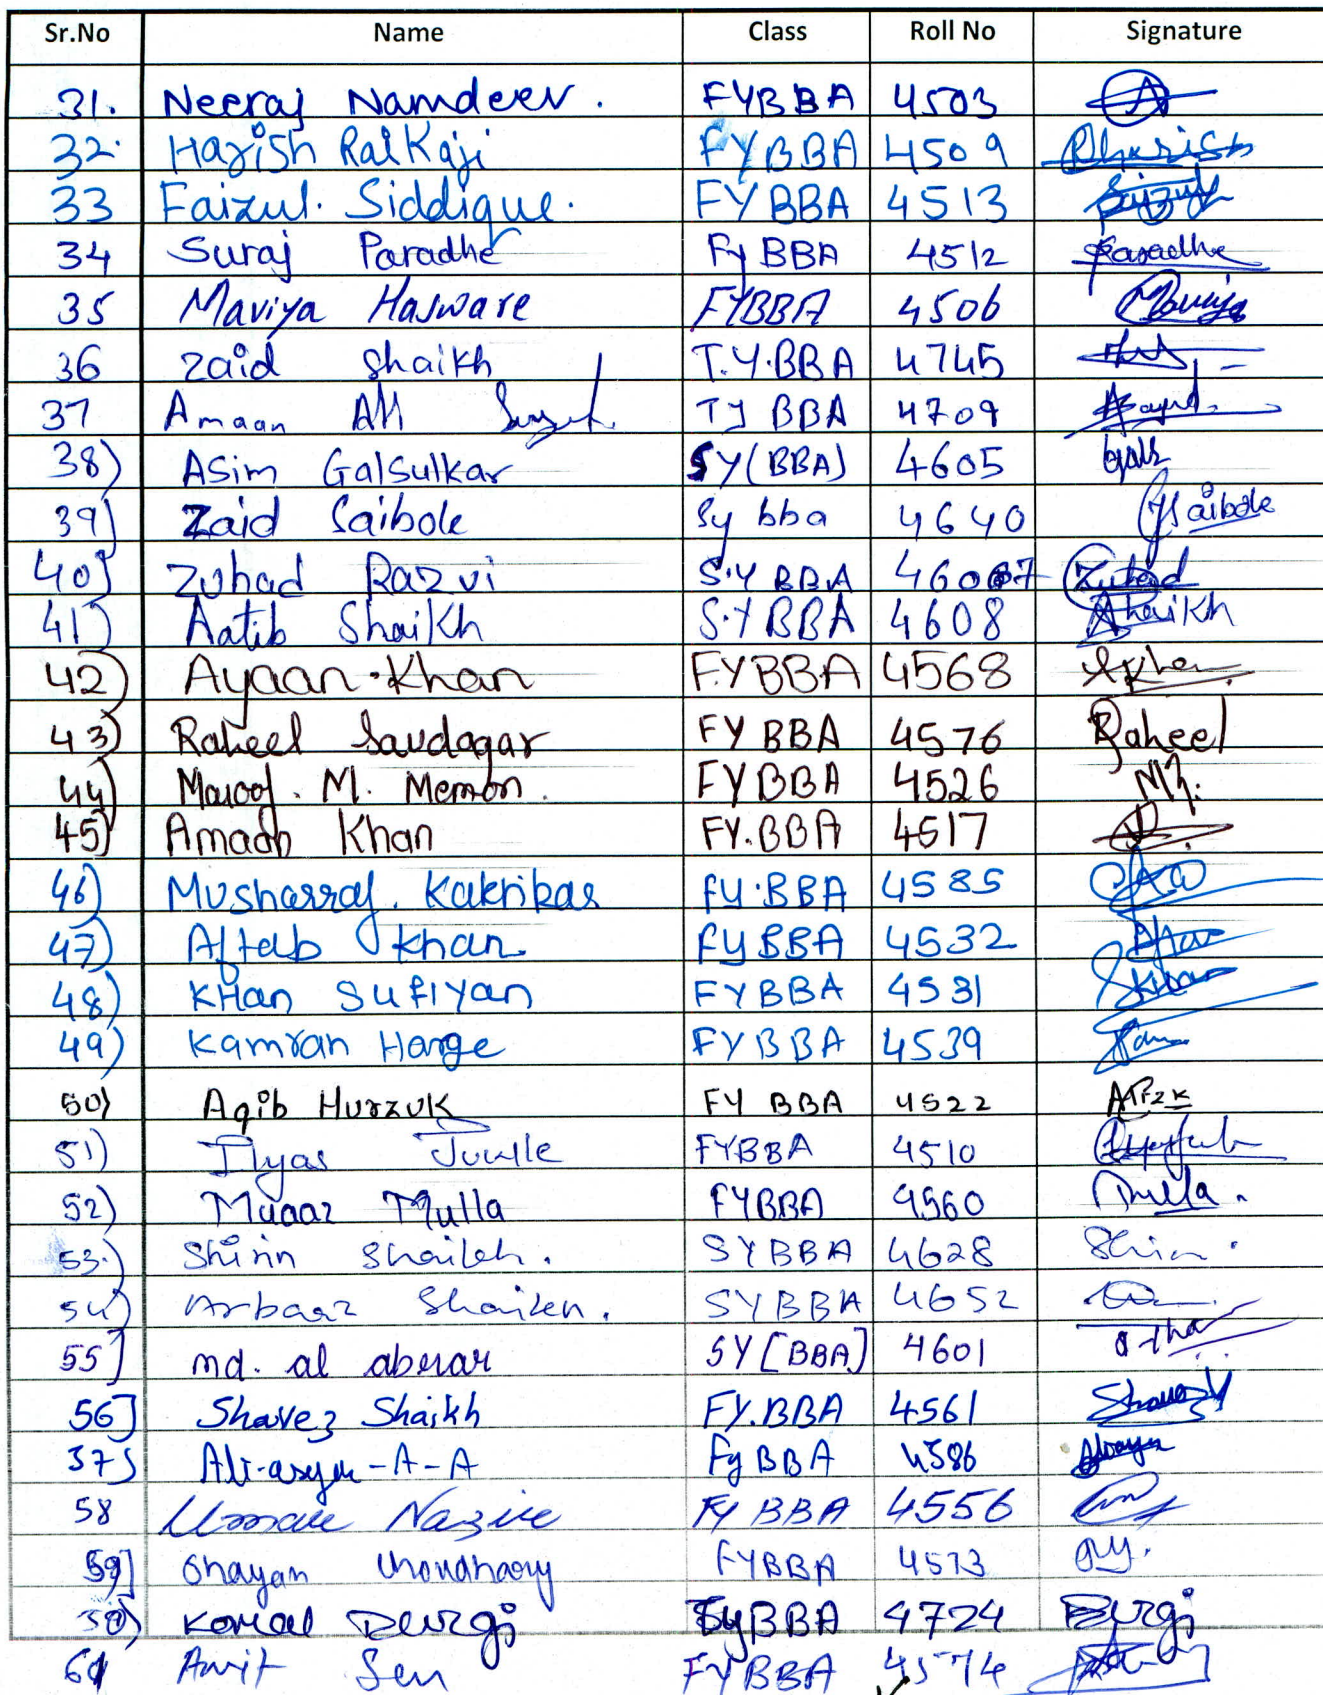 Sr.No Name Class Roll No Signature
31. Neeraj Namdeev. FYBBA 4503
32. Harish Ralkaji FYBBA 4509 Rharish
33 Faizul. Siddique. FYBBA 4513
34 Suraj Paradhe FyBBA 4512 Paradhe
35 Maviya Hasware FYBBA 4506 Maviya
36 Zaid Shaikh T.Y.BBA 4745
37 Amaan Ali TY BBA 4709
38) Asim Galsulkar SY(BBA) 4605 Gals
39) Zaid Saibole Sy bba 4640 Saibole
40) Zuhad Razvi S.Y BBA Zuhad
41) Aatib Shaikh S.Y BBA 4608 Shaikh
42) Ayaan Khan F.YBBA 4568
43) Raheel Saudagar FY BBA 4576 Raheel
44) Maroof. M. Memon. FYBBA 4526
45) Amaan Khan FY.BBA 4517
46) Musharraf. Kakrikar FY.BBA 4585
47) Aftab Khan FYBBA 4532
48) KHan Sufiyan FYBBA 4531 Skhan
49) Kamran Harge FYBBA 4539
50) Aqib Hurzuk FY BBA 4522
51) Ilyas FYBBA 4510
52) Muaaz Mulla FYBBA 4560 Mulla.
53.) Shirin Shaikh. SYBBA 4628 Shirin.
54) Arbaaz Shaikh. SYBBA 4652
55] md. al aberar SY[BBA] 4601
56] Shavez Shaikh FY.BBA 4561 Shavez
57] Ali-asger-A-A FyBBA 4586
58 Umair Nazire FY BBA 4556
59] Shayan Choudhary FYBBA 4573
Komal Durgi TyBBA 4724 Durgi
61 Amit Sen FYBBA 4574